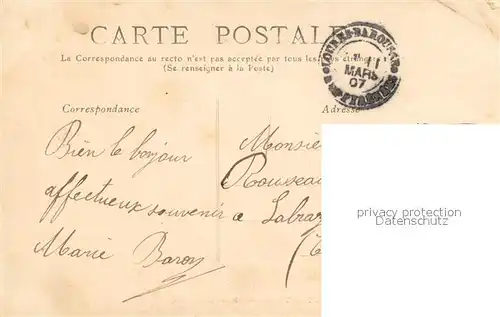 CARTE POSTALE
La Correspondance au recto n'est pas acceptée par tous les pays étrangers
(Se renseigner à la Poste)
11
MARS
07
Correspondance
Adresse
Bien le bonjour
affectueux souvenir
Marie Baron
Monsie
Rousseau
a Labra
privacy protection
Datenschutz